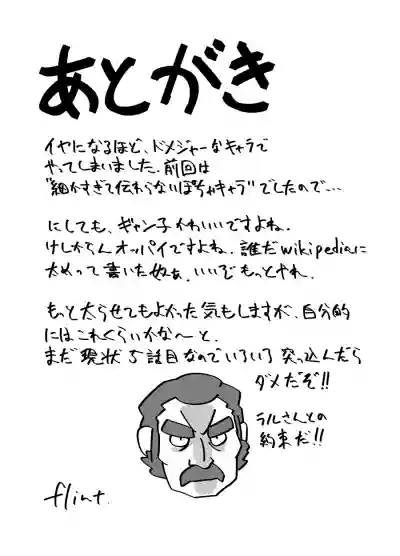 あとがき
イヤになるほど、ドメジャーなキャラで
やってしまいました。前回は
"細かすぎて伝わらないぽちゃキャラ"でしたので…
にしても、ギャン子かわいいですよね。
けしからんオッパイですよね。誰だwikipediaに
太めって書いた奴ぁ。いいぞもっとやれ。
もっと太らせてもよかった気もしますが、自分的
にはこれくらいかな〜と。
まだ現状5話目なのでいろいろ突っ込んだら
ダメだぞ!!
ラルさんとの
約束だ!!
flint.